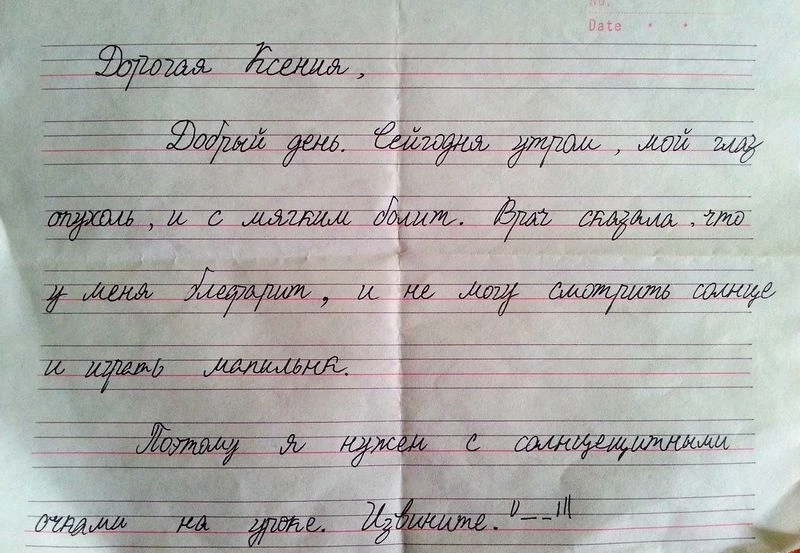 No.
Date
Дорогая Ксения,
Добрый день. Сейгодня утром, мой глаз
опухоль, и с мягким болит. Врач сказала, что
у меня блефарит, и не могу смотрить солнце
и играть мапильнк.
Поэтому я нужен с солнцещитными
очками на уроке. Извините. "__|||